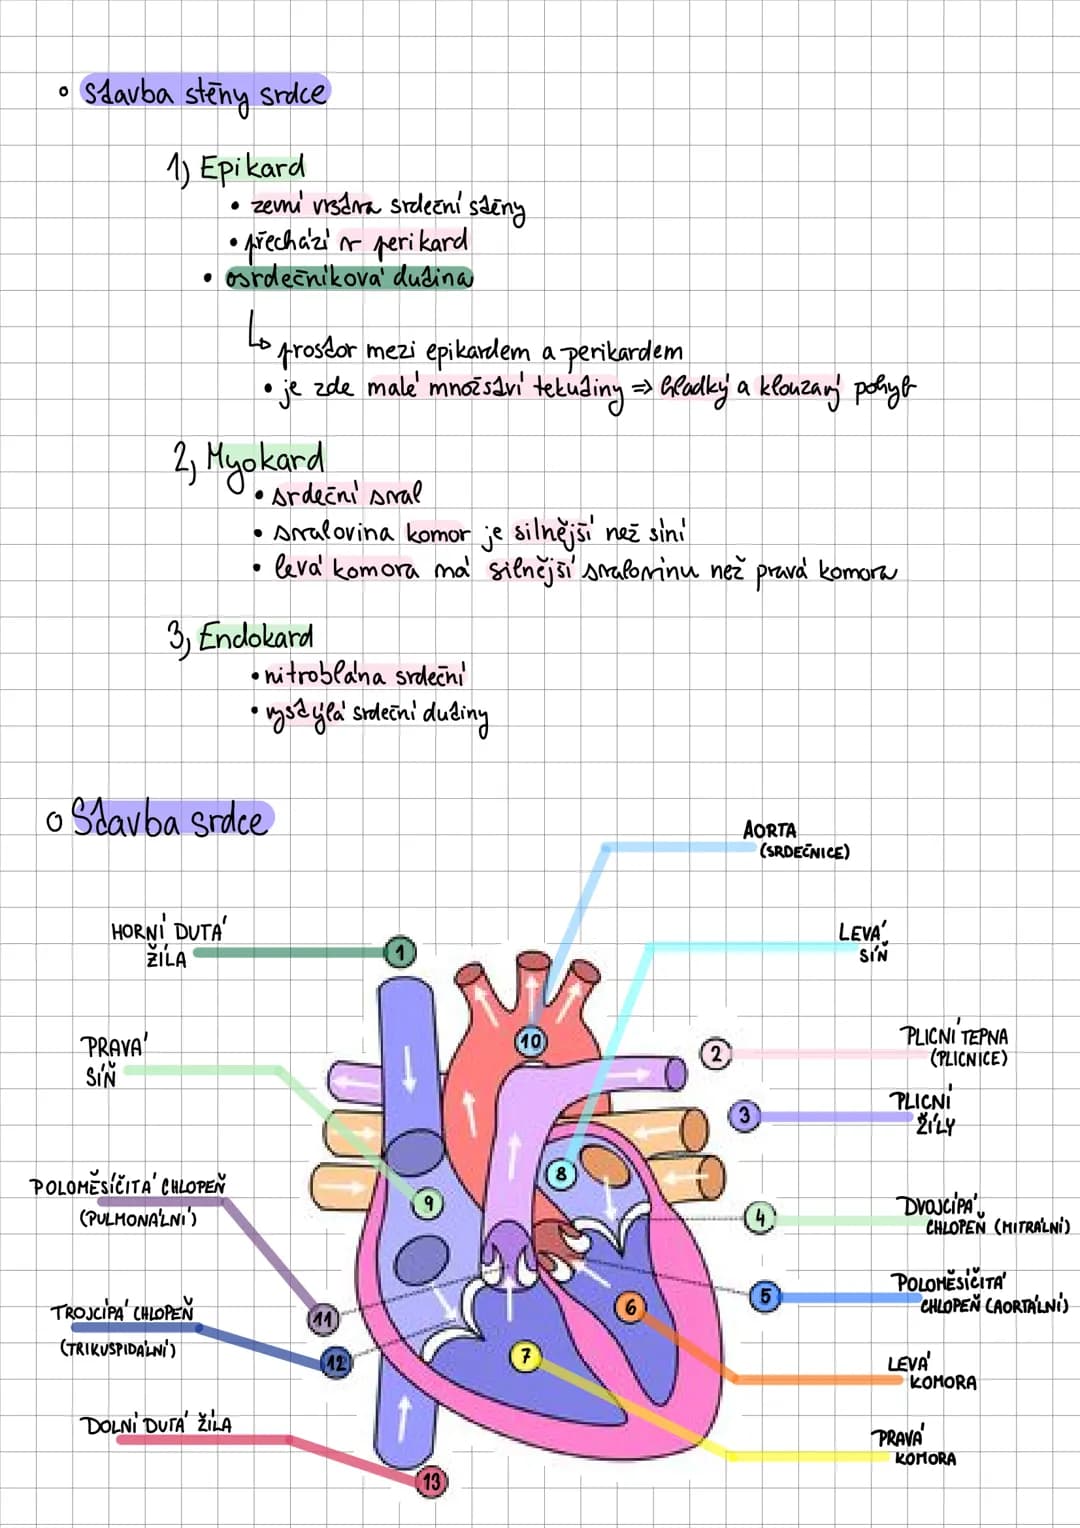 Stavba stěny srdce
1) Epikard
• zevní vrstva srdeční stěny
• přechází v perikard
• osrdečníková dutina
↳ prostor mezi epikardem a perikardem
• je zde malé množství tekutiny ⇒ hladký a klouzavý pohyb
2) Myokard
• srdeční sval
• svalovina komor je silnější než síní
• levá komora má silnější svalovinu než pravá komora
3) Endokard
• nitroblána srdeční
• vystýlá srdeční dutiny
Stavba srdce
AORTA
(SRDEČNICE)
HORNÍ DUTÁ
ŽÍLA
1
LEVÁ
SÍŇ
10
PRAVÁ
SÍŇ
2
PLICNÍ TEPNA
(PLICNICE)
3
PLICNÍ
ŽÍLY
8
9
POLOMĚSÍČITÁ CHLOPEŇ
(PULMONÁLNÍ)
4
DVOJCÍPÁ
CHLOPEŇ (MITRÁLNÍ)
5
POLOMĚSÍČITÁ
CHLOPEŇ (AORTÁLNÍ)
6
11
TROJCÍPÁ CHLOPEŇ
(TRIKUSPIDÁLNÍ)
12
7
LEVÁ
KOMORA
DOLNÍ DUTÁ ŽÍLA
13
PRAVÁ
KOMORA